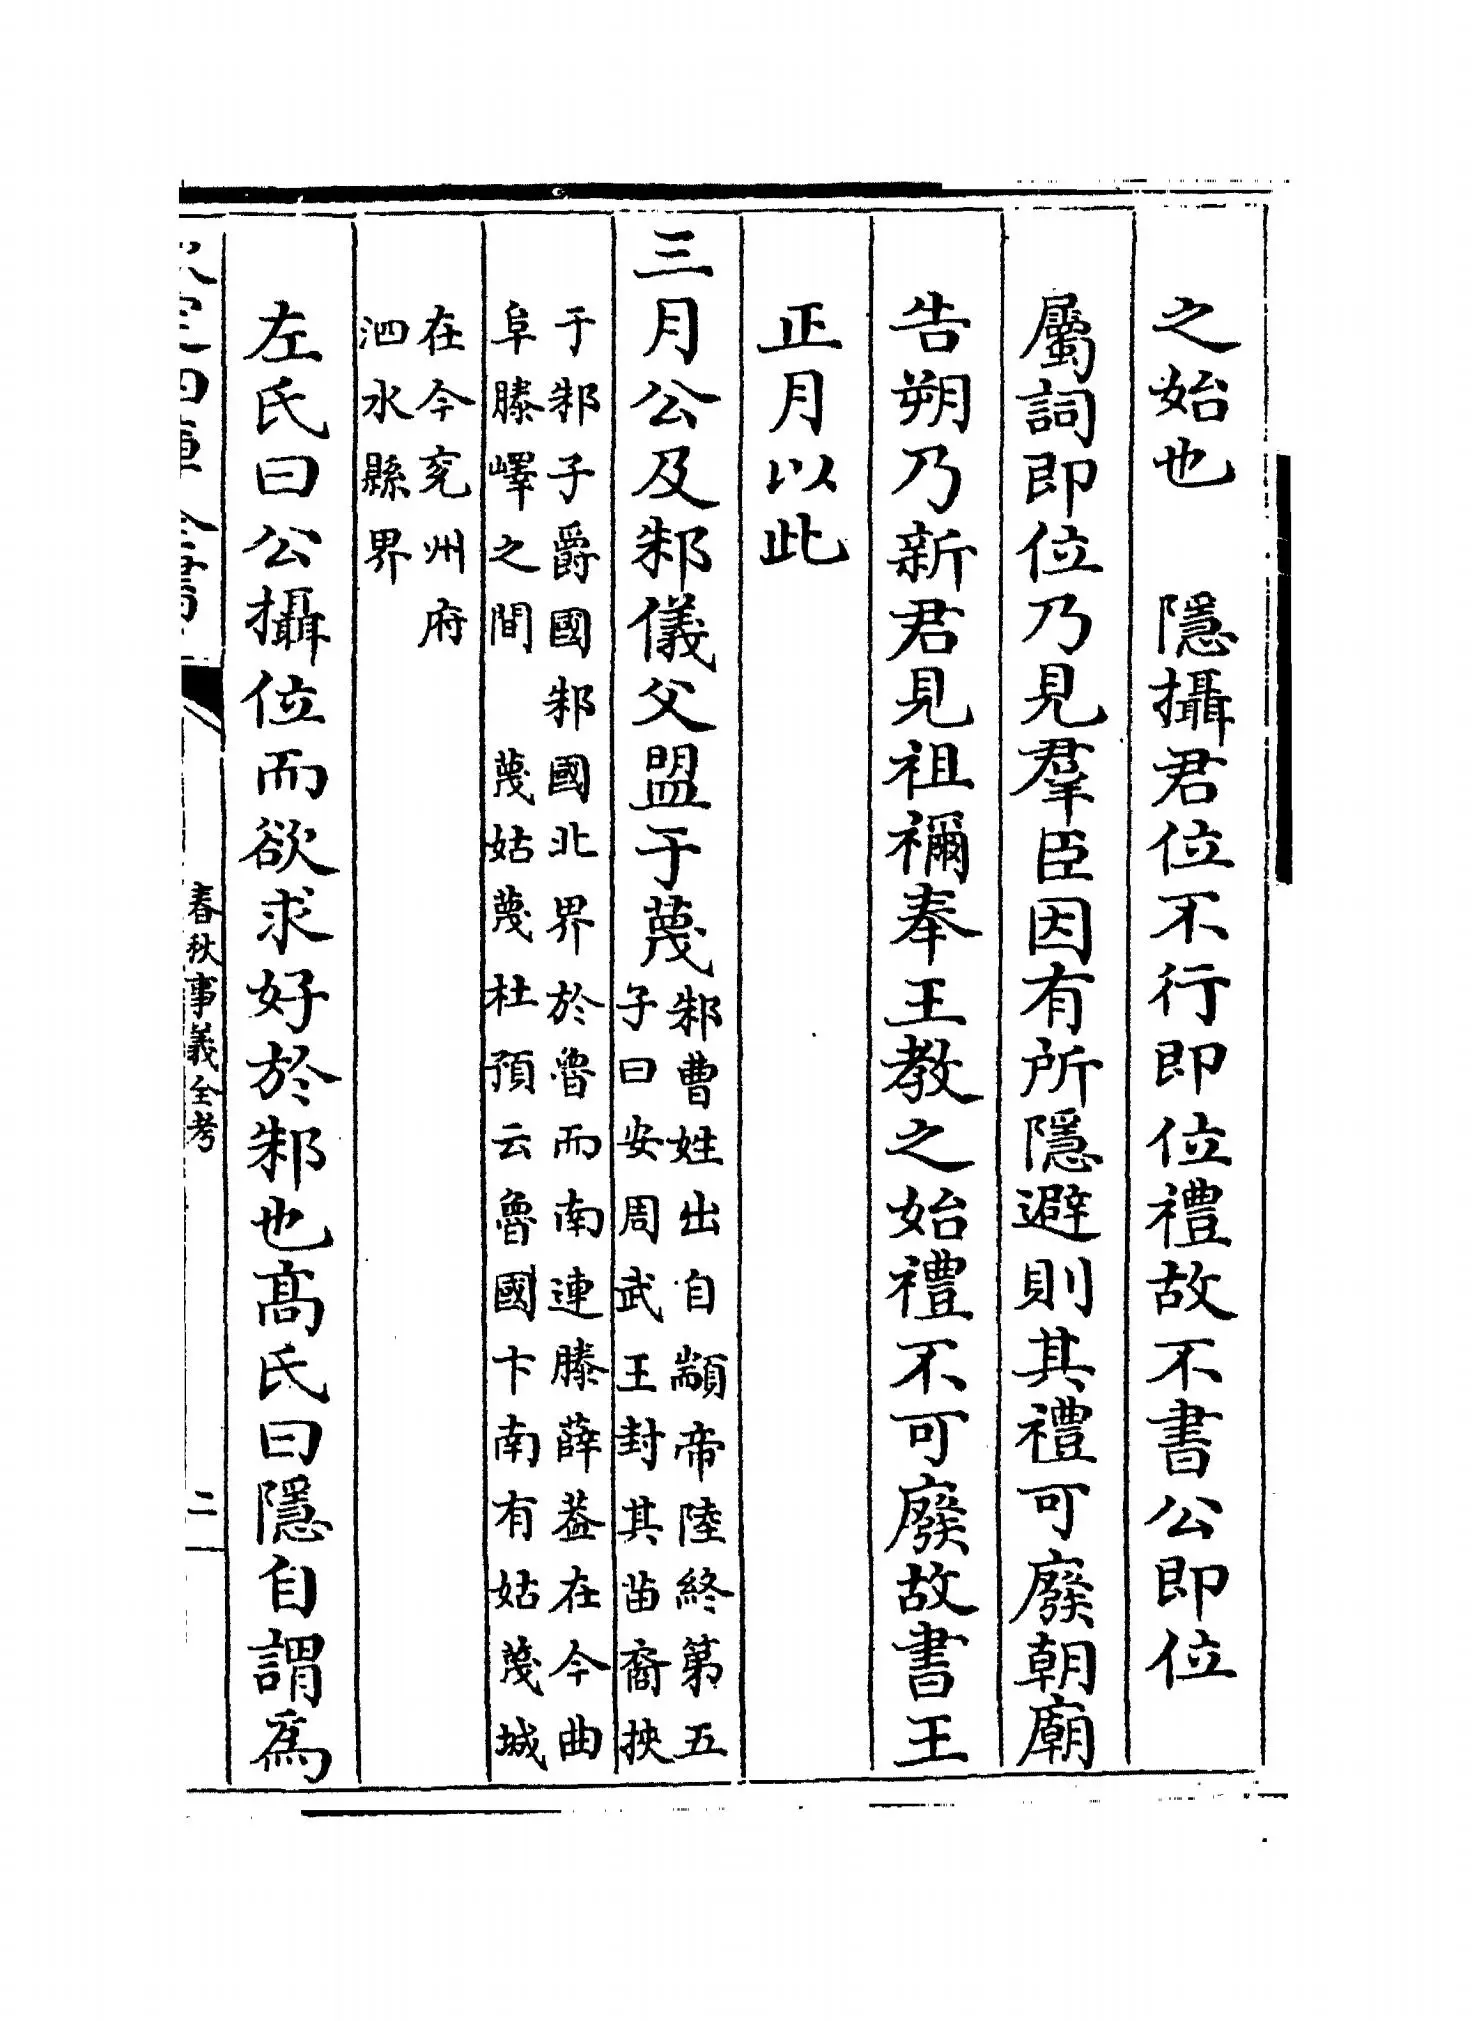 之始也　隱攝君位不行即位禮故不書公即位
屬詞即位乃見羣臣因有所隱避則其禮可廢朝廟
告朔乃新君見祖禰奉王教之始禮不可廢故書王
正月以此
三月公及邾儀父盟于蔑
邾曹姓出自顓帝陸終第五
子曰安周武王封其苗裔挾
于邾子爵國邾國北界於魯而南連滕薛葢在今曲
阜滕嶧之間　蔑姑蔑杜預云魯國卞南有姑蔑城
在今兖州府
泗水縣界
左氏曰公攝位而欲求好於邾也髙氏曰隱自謂爲
欽定四庫全書
春秋事義全考
二